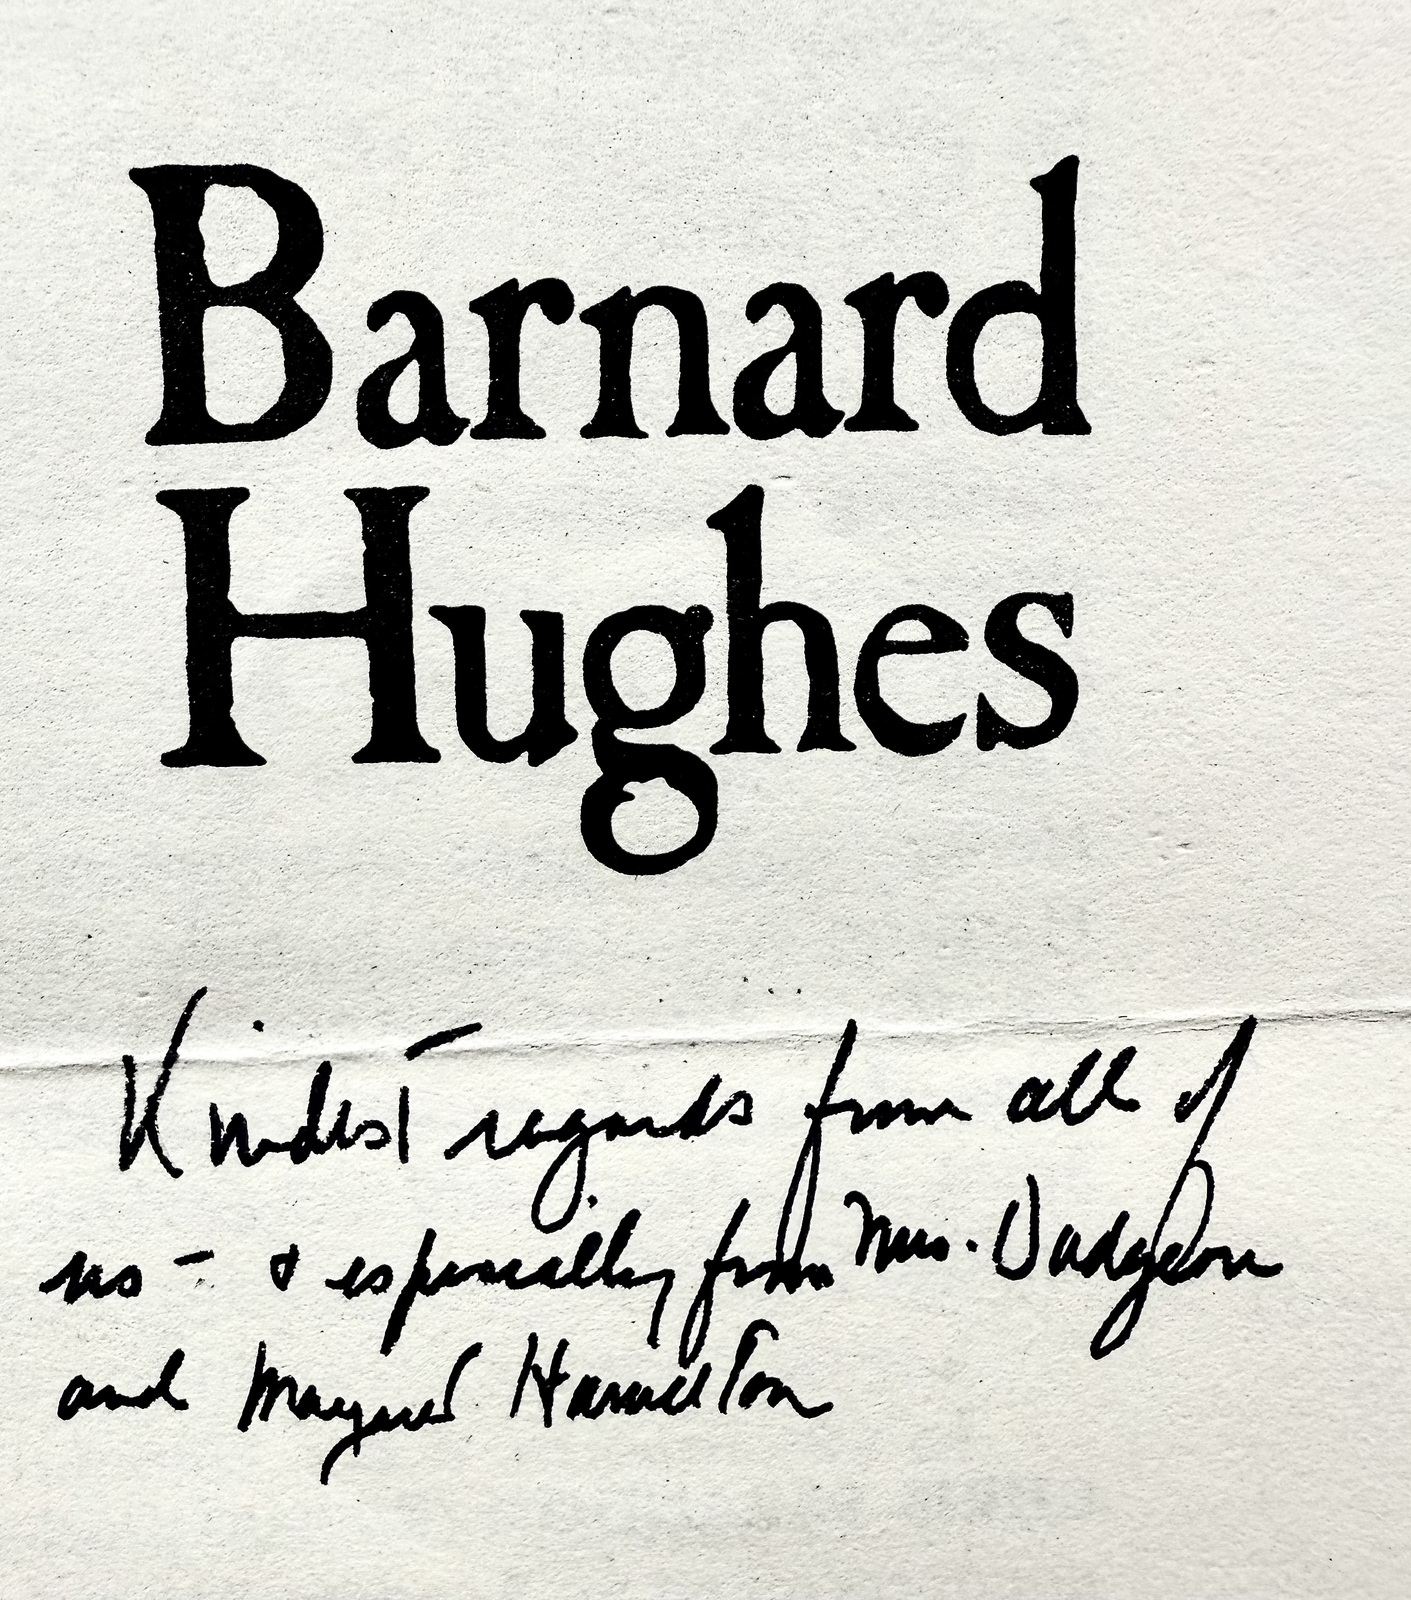 Barnard
Hughes
Kindest regards from all of
us - & especially from Mrs. Dudgeon
and Margaret Hamilton